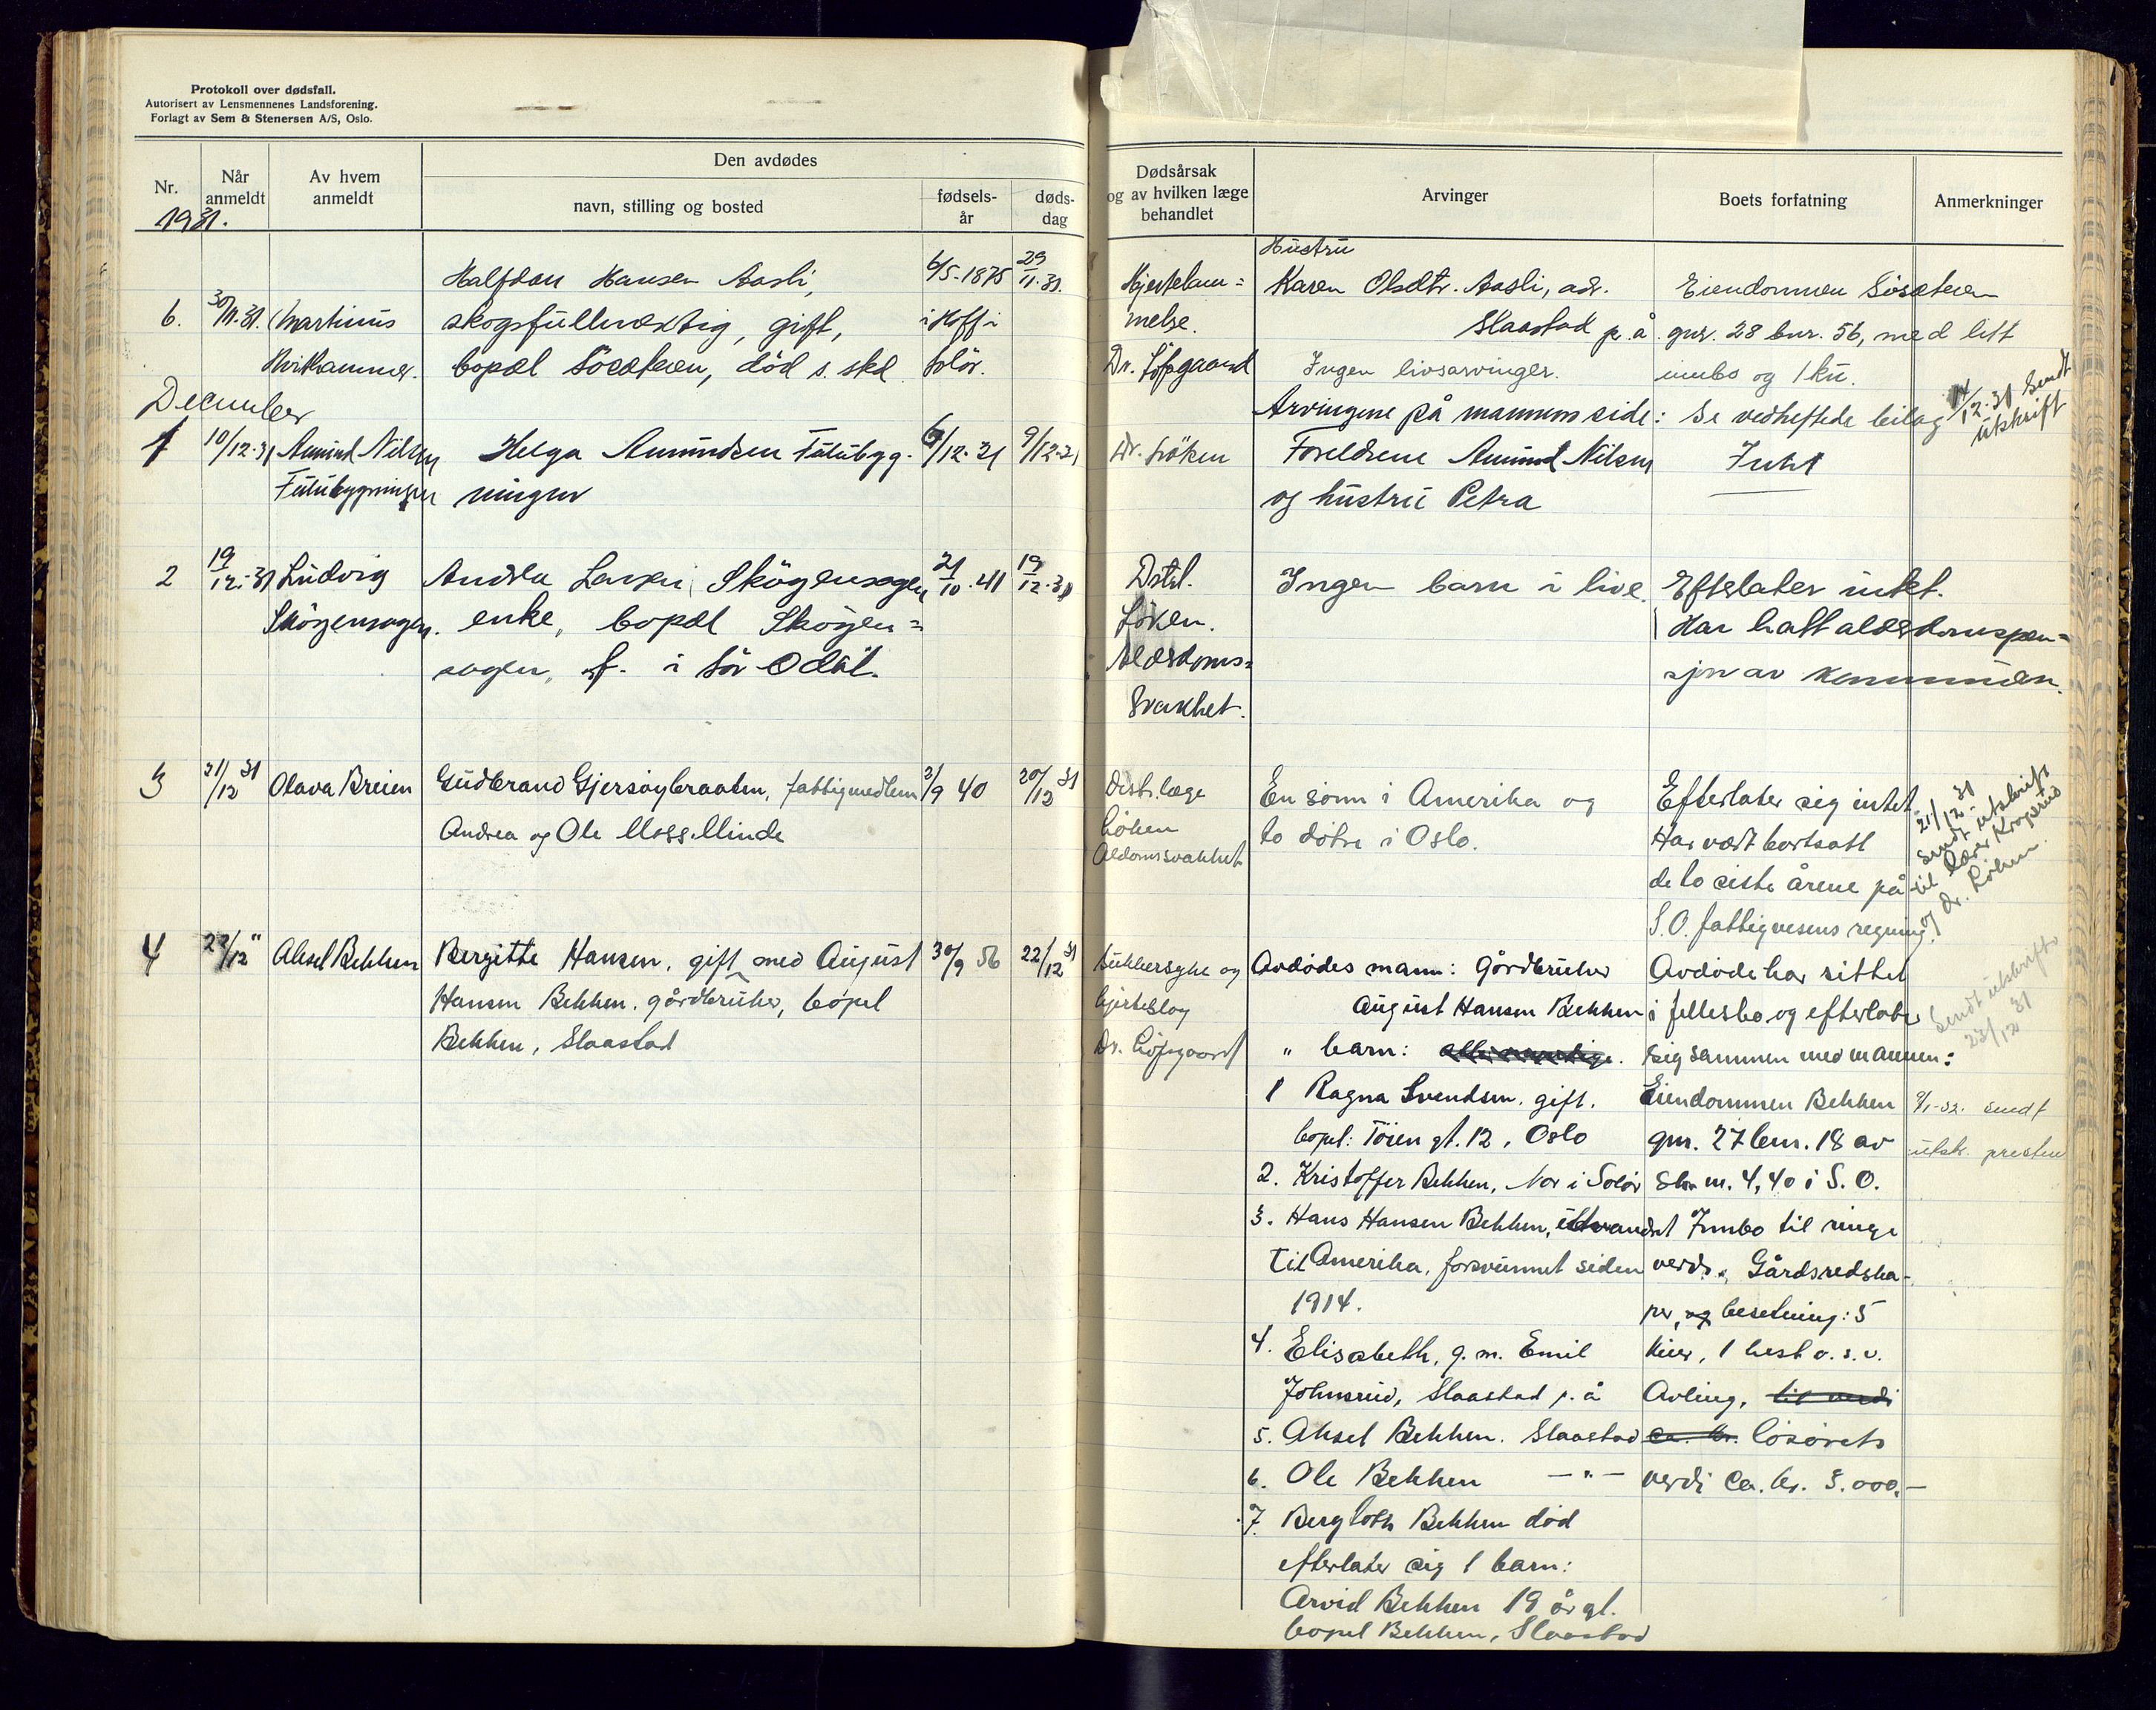 Protokoll over dødsfall.
Autorisert av Lensmennenes Landsforening.
Forlagt av Sem & Stenersen A/S, Oslo.
Nr.
Når anmeldt
Av hvem anmeldt
Den avdødes
navn, stilling og bosted
fødsels-år
døds-dag
1931.
Halfdan Hansen Aasli, 6/5-1875 29/11.31.
6. 30/11.31. Martinus skogsfullmektig, gift, i Hoff i
Hvithammer. bopæl Söæteren, död s. std. Solör.
December
1 10/12.31 Amund Nilsen Helga Amundsen Tutubygg- 6/12.31 9/12.31
Tutubygningen ningen
2 19/12.31 Ludvig Andrea Larsen Skögensagen 21/10.41 19/12.31
Skögensagen. enke, bopæl Skögen=
sagen, f. i Sör-Odal.
3 21/12 31 Olava Breien Gudbrand Gjersöybraaten, fattigmedlem 2/9 40 20/12 31
Andrea og Ole Moss. Minde
4 22/12 " Aksel Bekken Bergitte Hansen, gift med August 30/9 56 22/12 31
Hansen Bekken. gårdbruker, bopel
Bekken, Slaastad
Dødsårsak og av hvilken læge behandlet
Arvinger
Boets forfatning
Anmerkninger
Hustru
Hjertelam= Karen Olsdtr. Aasli, adr. Eiendommen Söseteren
melse. Slaastad p. å. gnr. 28 bnr. 56, med litt
Dr. Löfsgaard Ingen livsarvinger. innbo og 1 ku.
Arvingene på mannens side: Se vedheftede bilag 12.31 Sendt
utskrift
Dr. Löken Foreldrene Amund Nilsen Intet
og hustru Petra
Distrl. Ingen barn i live. Efterlater intet.
Löken. Har hatt alderdomspen=
Alderdoms= sjon av kommunen.
Svakhet.
Distr. læge En sönn i Amerika og Efterlater sig intet
Löken to dötre i Oslo. Har vært bortsatt
Aldomssvakhet de to siste årene på
S.O. fattigvesens regning.
21/12 31
Sendt utskrift
til Lærer Krogsrud
og dr. Löken.
Sukkersyke og Avdödes mann: Gårdbruker Avdöde har sittet
hjerteslag August Hansen Bekken i fellesbo og efterlater
Dr. Löfsgaard " barn: sig sammen med mannen:
Sendt utskrift
23/12 31
1 Ragna Svendsen. gift. Eiendommen Bekken 9/1-32. sendt
bopel: Töien gt. 12, Oslo gnr. 27 bnr. 18 av utskr. presten
2. Kristoffer Bekken, Nor i Solör skm. 4,40 i S. O.
3. Hans Hansen Bekken, utvandret Innbo til ringe
til Amerika, forsvunnet siden verdi. Gårdsredska-
1914. per, og besetning: 5
4. Elisabeth, g. m. Emil kuer, 1 hest o. s. v.
Johnsrud, Slaastad p. å Avling, til verdi
5. Aksel Bekken. Slaastad ca. kr. lösörets
6. Ole Bekken —"— verdi ca. kr. 3.000.—
7. Bergloth Bekken död
efterlater sig 1 barn:
Arvid Bekken 19 år gl.
bopel Bekken, Slaastad